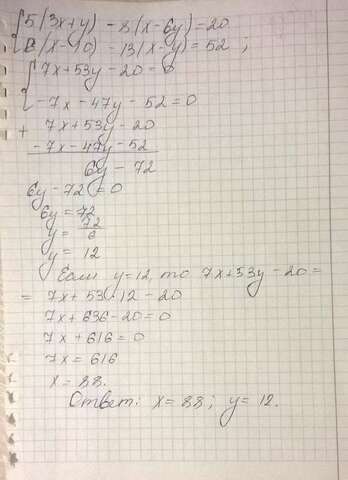 5(3x+y) - 8(x-6y) = 20
(x-10) - 13(x-y) = 52 ;
7x+53y-20=0
-7x-47y-52=0
+ 7x+53y-20
-7x-47y-52
6y-72
6y-72=0
6y=72
y= 72/6
y= 12
Если y=12, то 7x+53y-20=
= 7x+53·12-20
7x+636-20=0
7x+616=0
7x=616
x=88.
Ответ: x=88; y=12.